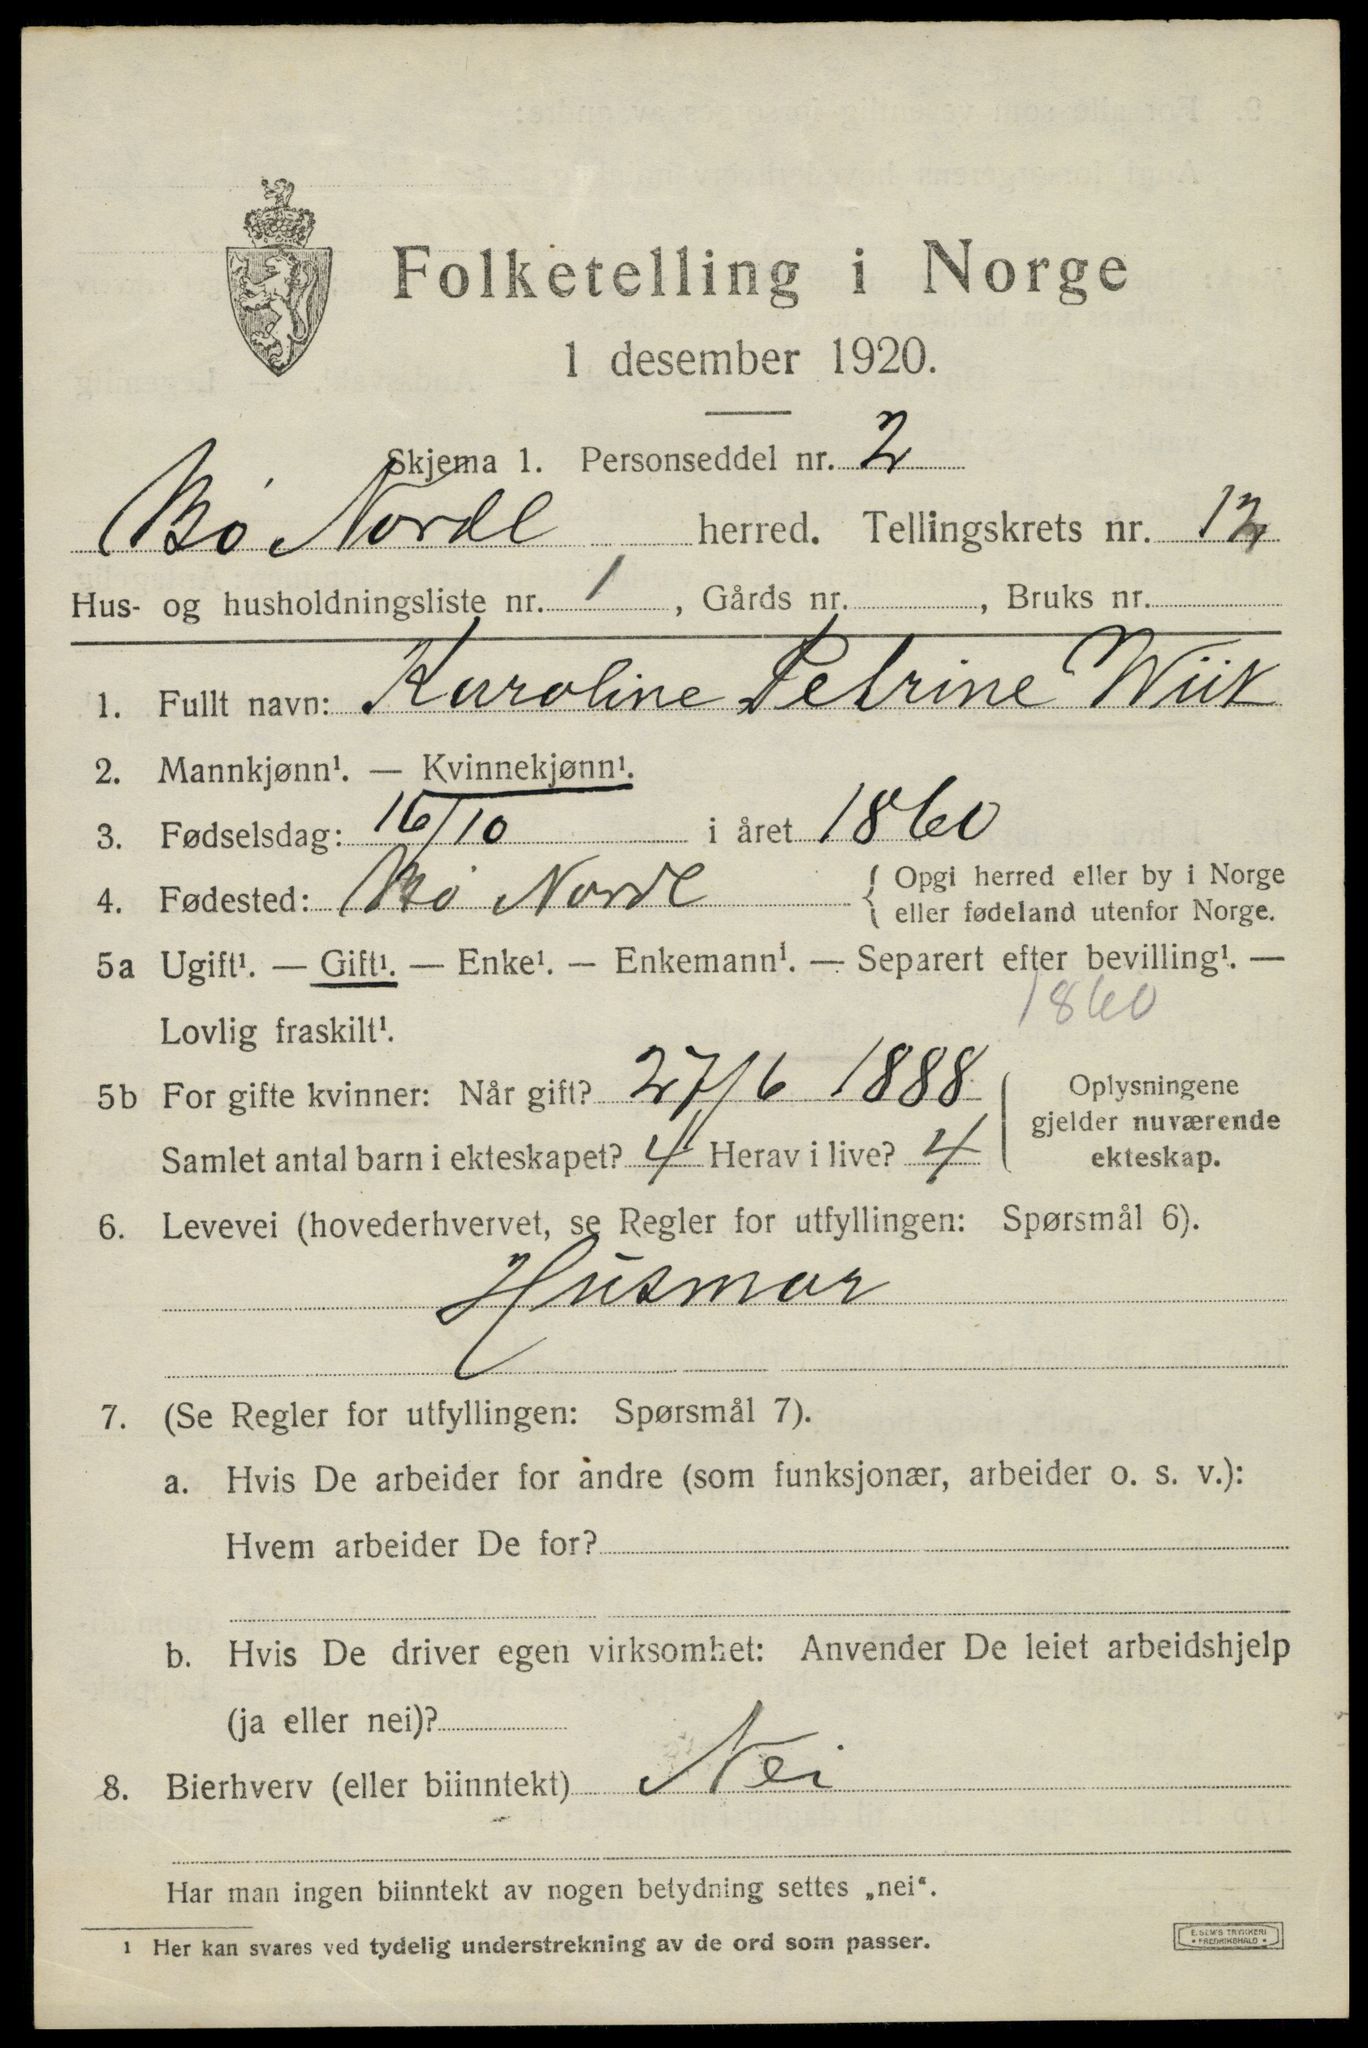 Folketelling i Norge
1 desember 1920.
Skjema 1. Personseddel nr. 2
Bø Nordl herred. Tellingskrets nr. 12
Hus- og husholdningsliste nr. 1, Gårds nr. , Bruks nr.
1. Fullt navn: Karoline Petrine Wiik
2. Mannkjønn¹. — Kvinnekjønn¹.
3. Fødselsdag: 16/10 i året 1860
4. Fødested: Bø Nordl { Opgi herred eller by i Norge
eller fødeland utenfor Norge.
5a Ugift¹. — Gift¹. — Enke¹. — Enkemann¹. — Separert efter bevilling¹. —
1860
Lovlig fraskilt¹.
5b For gifte kvinner: Når gift? 27/6 1888
Samlet antal barn i ekteskapet? 4 Herav i live? 4
Oplysningene
gjelder nuværende
ekteskap.
6. Levevei (hovederhvervet, se Regler for utfyllingen: Spørsmål 6).
Husmor
7. (Se Regler for utfyllingen: Spørsmål 7).
a. Hvis De arbeider for andre (som funksjonær, arbeider o. s. v.):
Hvem arbeider De for?
b. Hvis De driver egen virksomhet: Anvender De leiet arbeidshjelp
(ja eller nei)?
8. Bierhverv (eller biinntekt) Nei
Har man ingen biinntekt av nogen betydning settes „nei“.
¹ Her kan svares ved tydelig understrekning av de ord som passer.
E. SEM'S TRYKKERI
• FREDRIKSHALD •